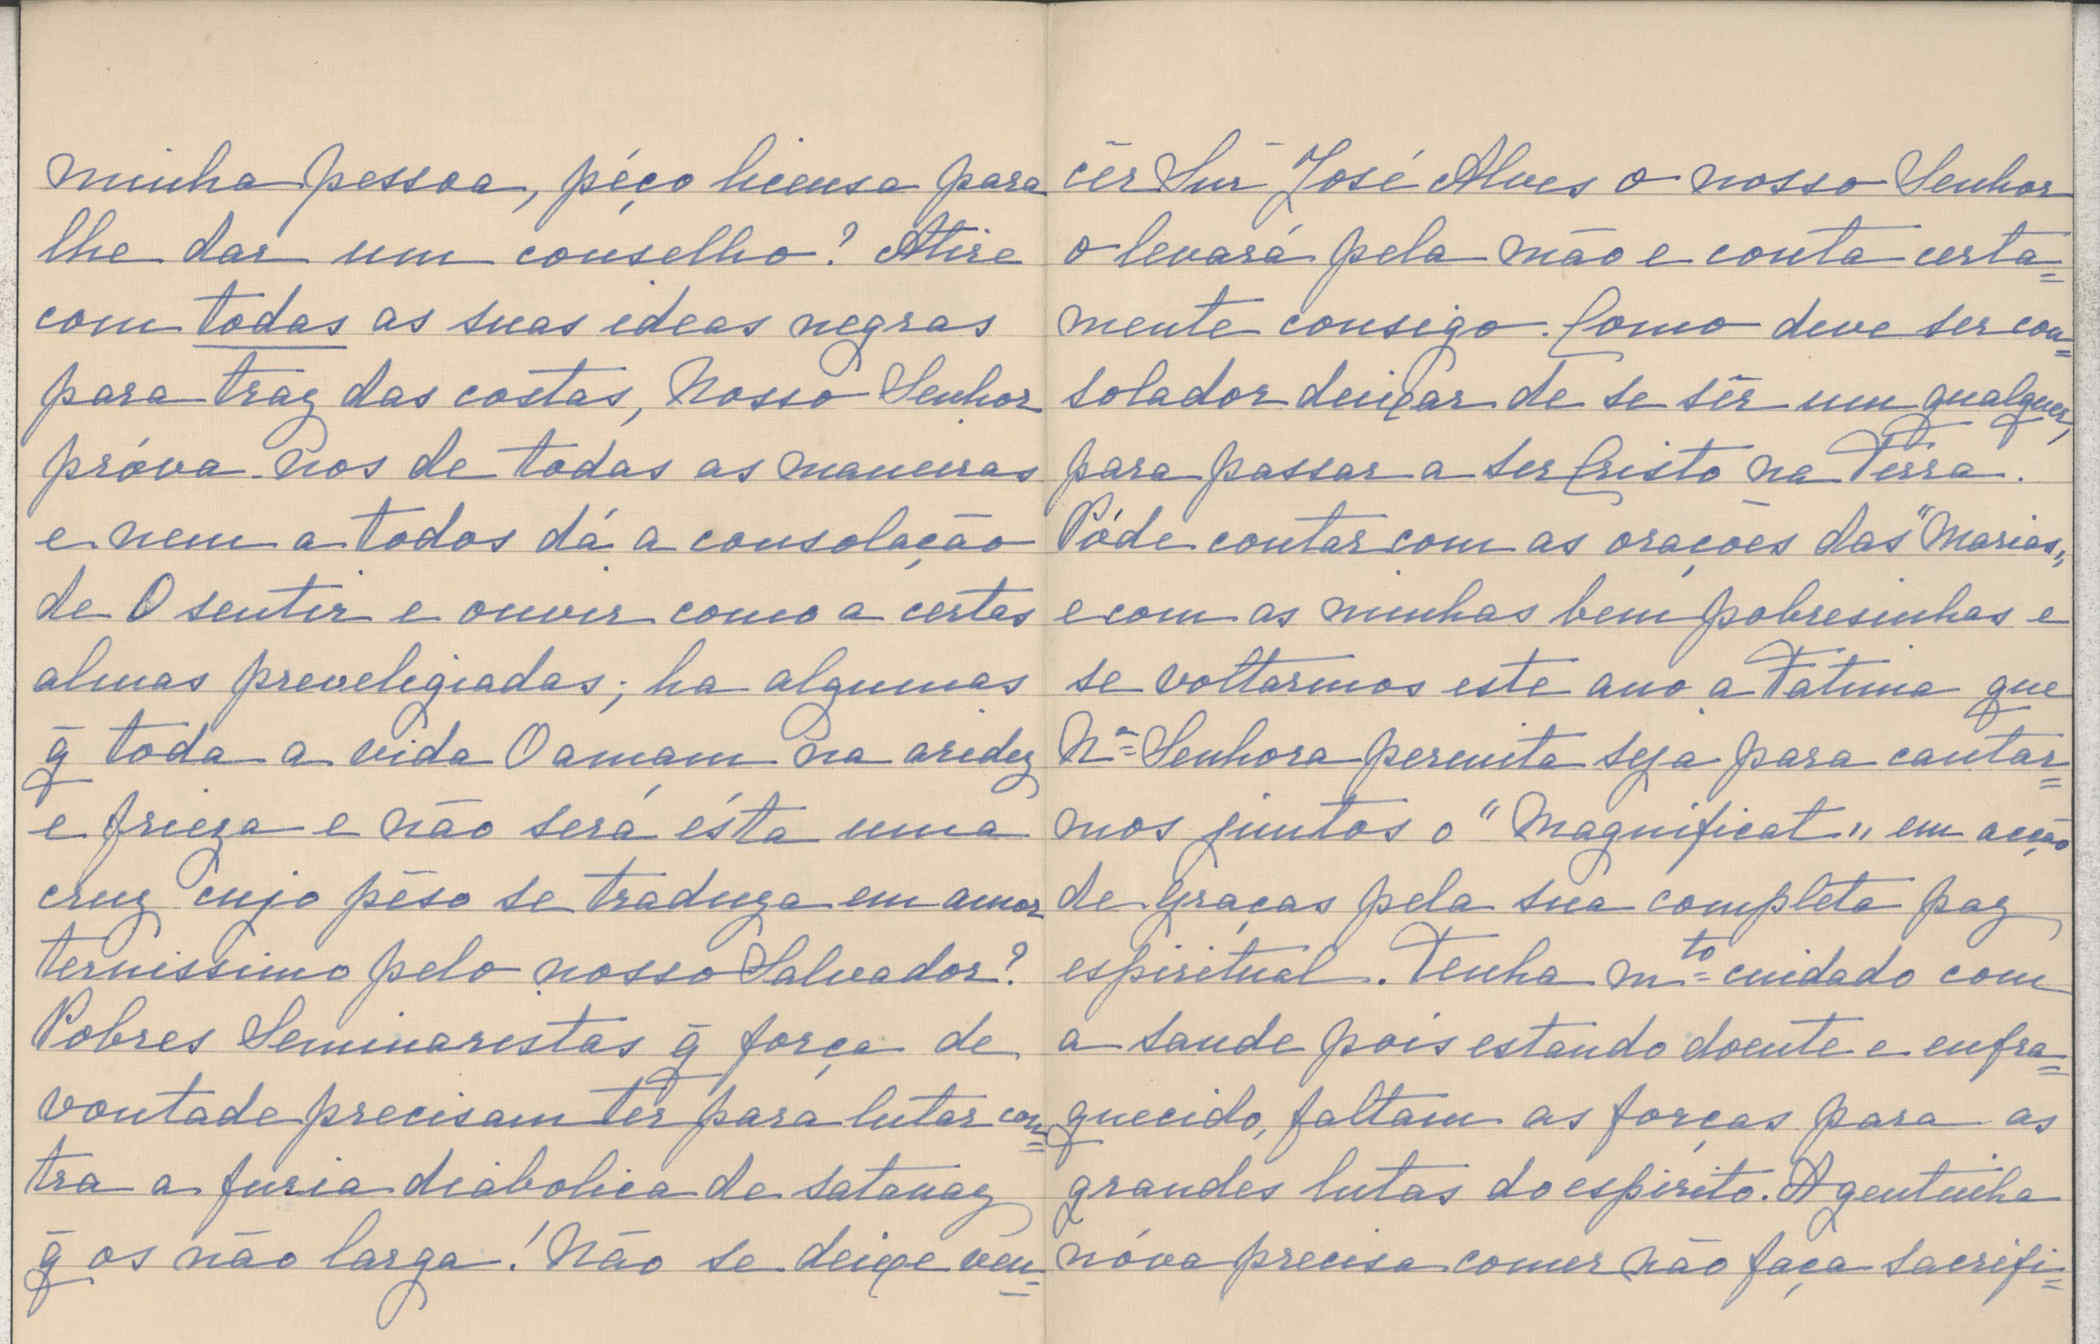 minha pessoa, péço licensa para
lhe dar um conselho? Atire
com todas as suas ideas negras
para traz das costas, Nosso Senhor
próva-nos de todas as maneiras
e nem a todos dá a consolação
de O sentir e ouvir como a certas
almas preveligiadas; ha algumas
q̃ toda a vida O amam na aridez
e frieza e não será ésta uma
cruz cujo pêso se traduza em amor
ternissimo pelo nosso Salvador?
Pobres Seminaristas q̃ força de
vontade precisam ter para lutar con=
tra a furia diabolica de satanaz
q̃ os não larga! Não se deixe ven=
cêr Snr José Alves o nosso Senhor
o levará pela mão e conta certa=
mente consigo. Como deve ser con=
solador deixar de se sêr um qualquer,
para passar a ser Cristo na Terra.
Póde contar com as orações das "Marias"
e com as minhas bem pobresinhas e
se voltarmos este ano a Fatima que
Nª= Senhora permita seja para cantar=
mos juntos o "Magnificat" em acção
de graças pela sua completa paz
espiritual. Tenha mto= cuidado com
a saude pois estando doente e enfra=
quecido, faltam as forças para as
grandes lutas do espirito. A gentinha
nóva precisa comer não faça sacrifi=